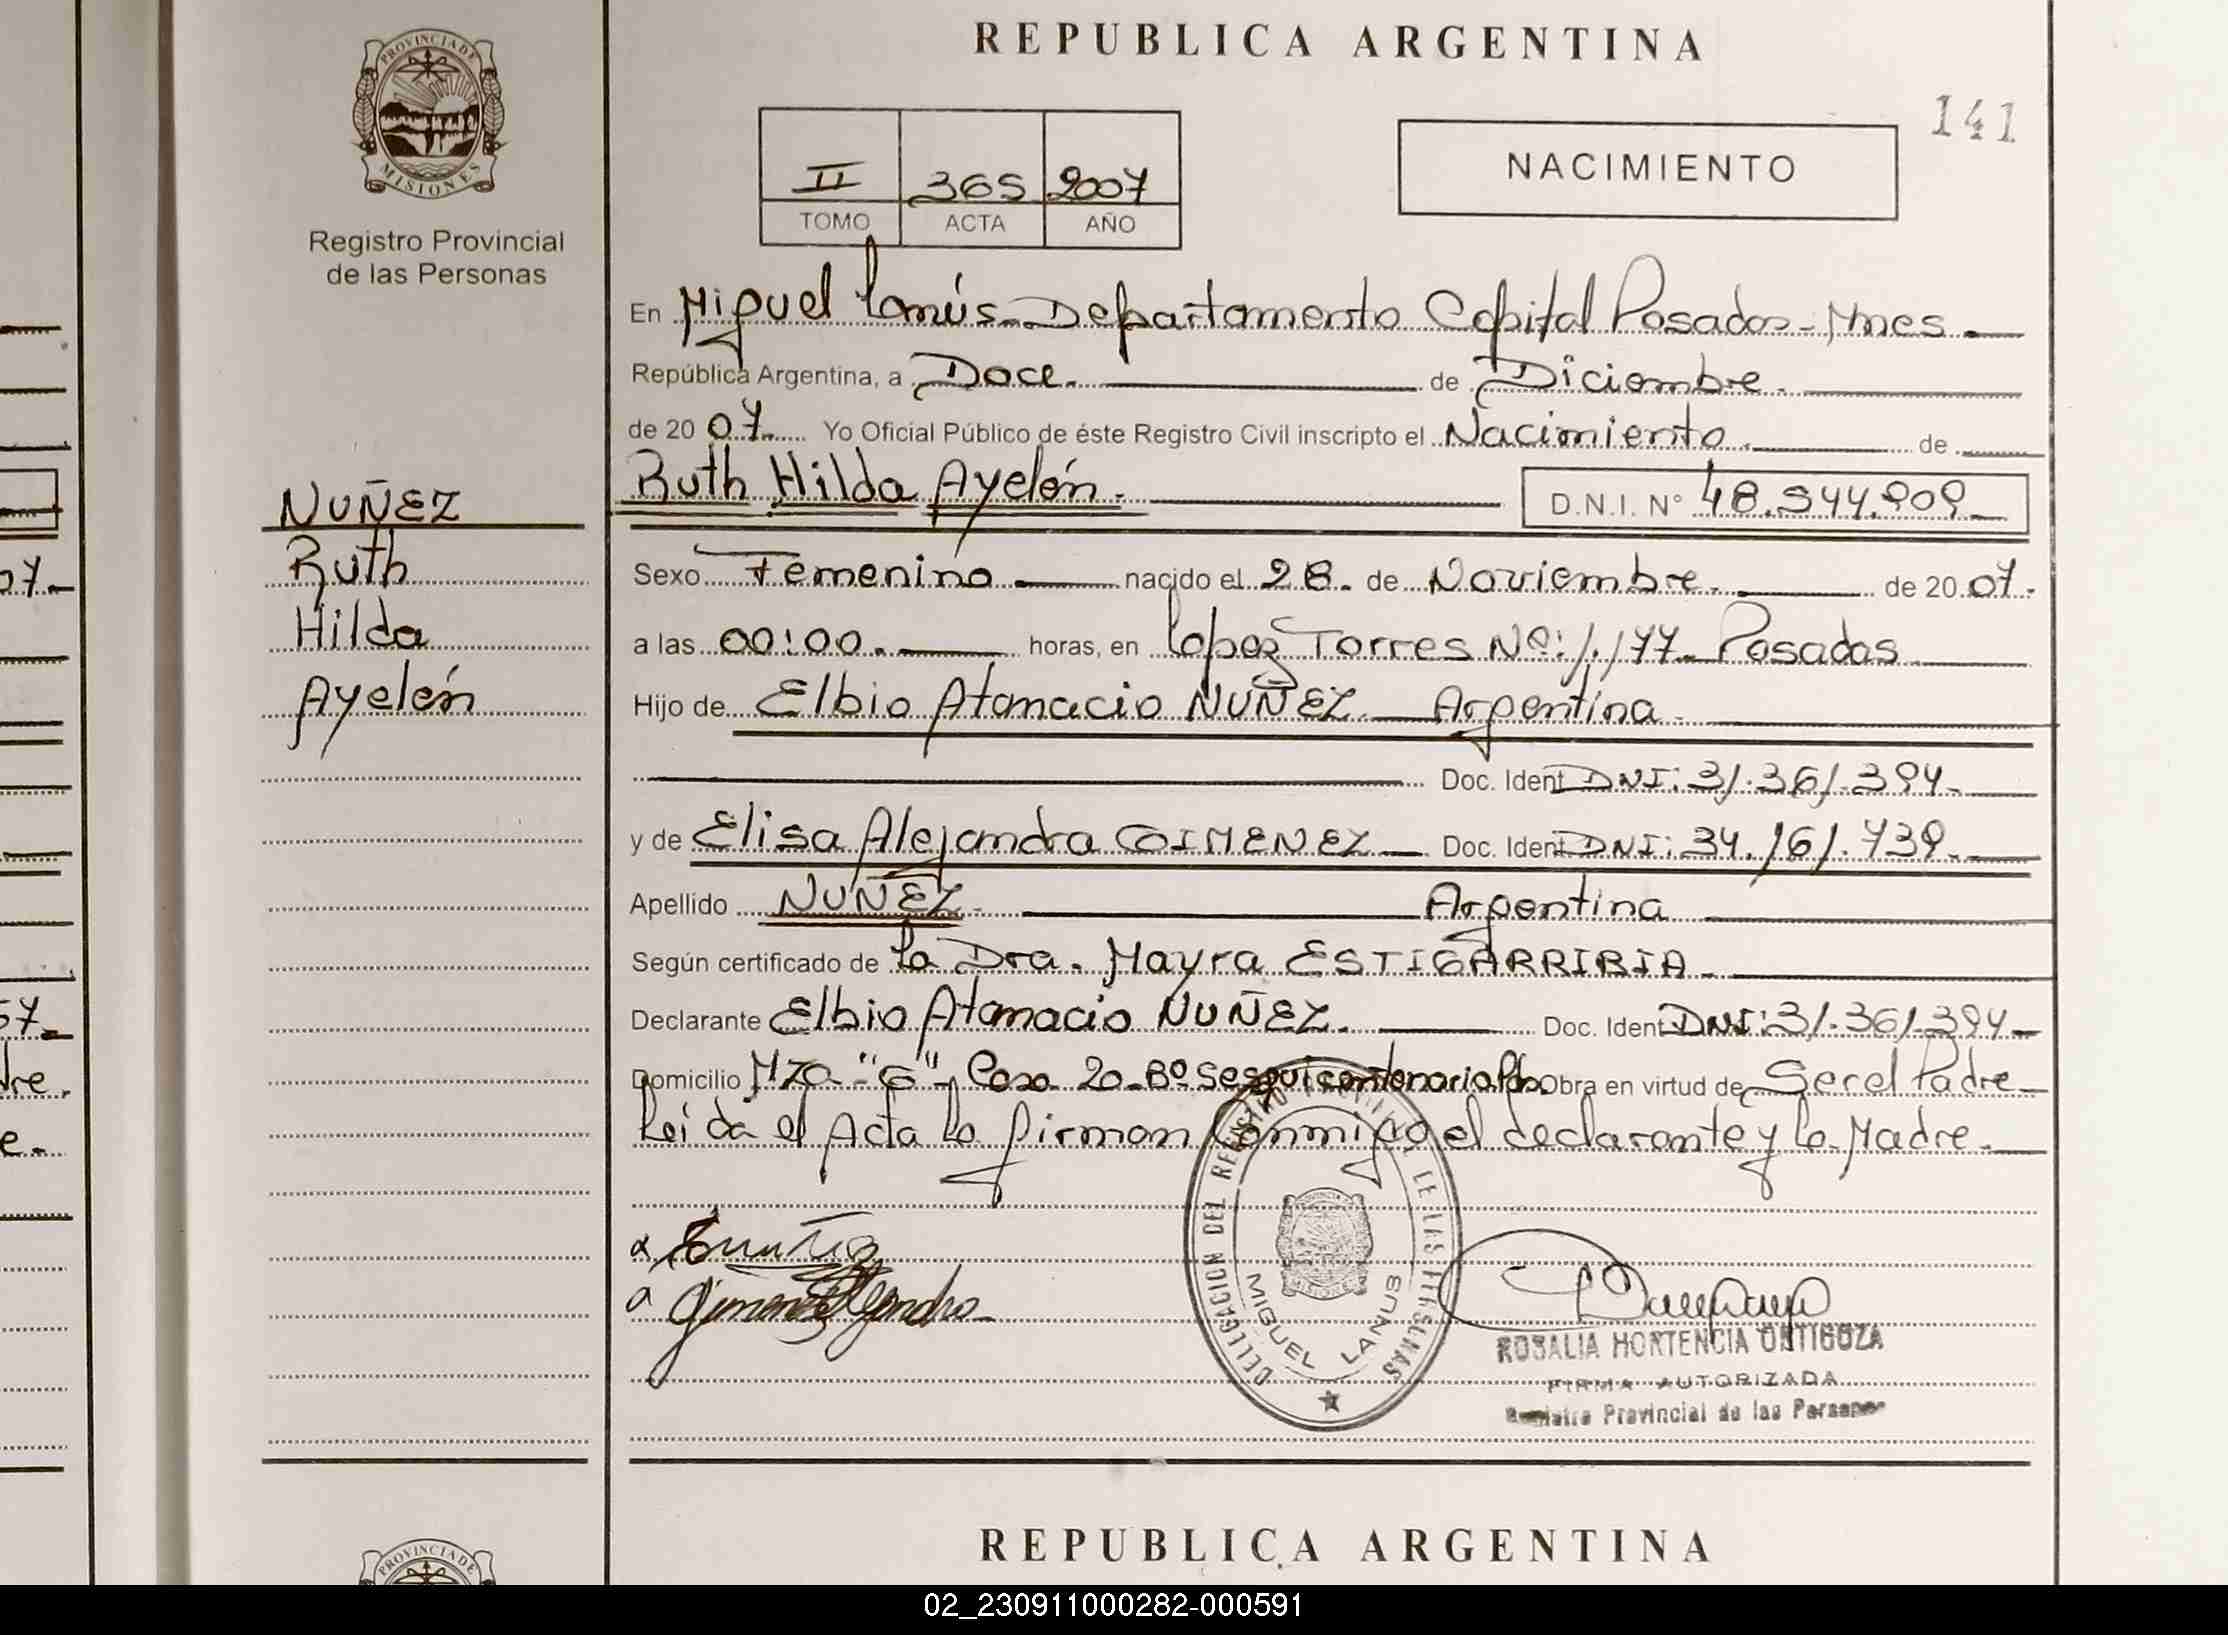 PROVINCIA DE
MISIONES
Registro Provincial
de las Personas
NUÑEZ
Ruth
Hilda
Ayelén
REPUBLICA ARGENTINA
141
II 365 2007
TOMO ACTA AÑO
NACIMIENTO
En Miguel Lanús - Departamento Capital Posadas - Mnes.
República Argentina, a Doce. de Diciembre.
de 20 07. Yo Oficial Público de éste Registro Civil inscripto el Nacimiento. de
Ruth Hilda Ayelén. D.N.I. N° 48.544.909
Sexo Femenino nacido el 28. de Noviembre. de 20 07.
a las 00:00. horas, en Lopez Torres Nº: 1.177 - Posadas
Hijo de Elbio Atanacio NUÑEZ. Argentina
Doc. Ident DNI: 31.361.394.
y de Elisa Alejandra GIMENEZ Doc. Ident DNI: 34.161.739.
Apellido NUÑEZ. Argentina
Según certificado de la Dra. Mayra ESTIGARRIBIA
Declarante Elbio Atanacio NUÑEZ. Doc. Ident DNI: 31.361.394
Domicilio Mza "G" Casa 20 - Bº Sesquicentenario Pdas Obra en virtud de Ser el Padre
Leída el Acta la firman Conmigo el declarante y la Madre.
DELEGACION DEL REGISTRO PROVINCIAL DE LAS PERSONAS
MIGUEL LANUS
ROSALIA HORTENCIA ORTIGOZA
FIRMA AUTORIZADA
Registro Provincial de las Personas
REPUBLICA ARGENTINA
PROVINCIA DE
02_230911000282-000591